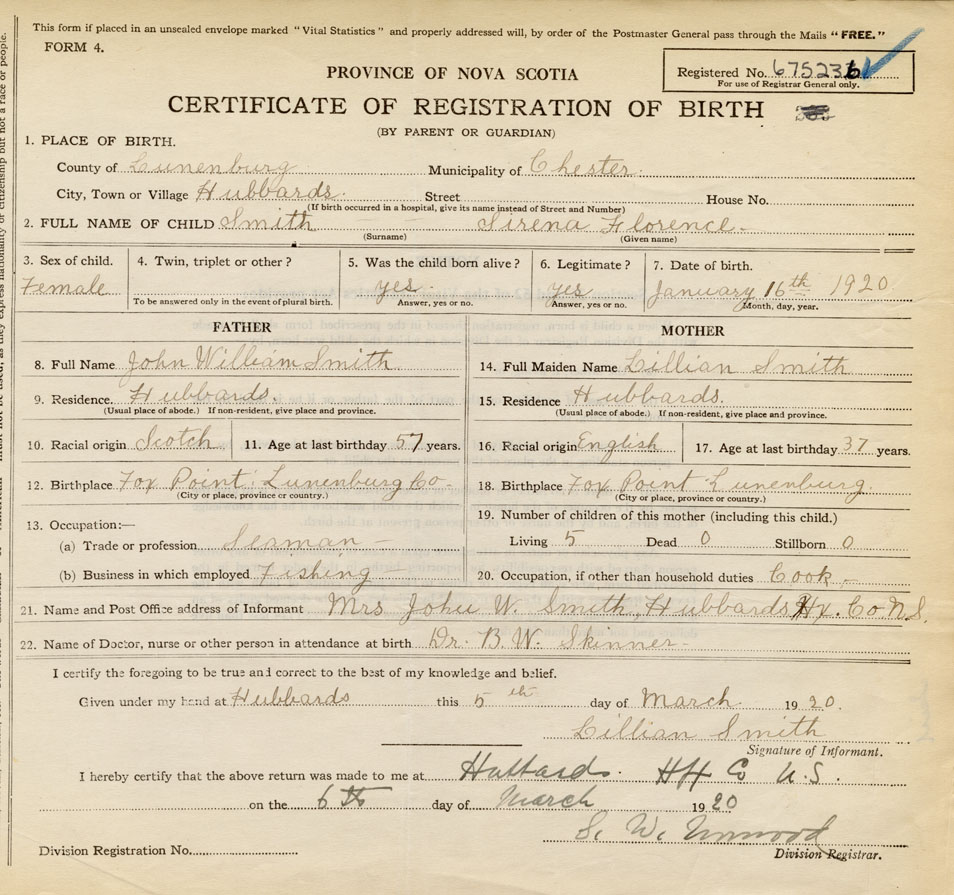 This form if placed in an unsealed envelope marked "Vital Statistics" and properly addressed will, by order of the Postmaster General pass through the Mails "FREE."
FORM 4.
Registered No. 675236
For use of Registrar General only.
PROVINCE OF NOVA SCOTIA
CERTIFICATE OF REGISTRATION OF BIRTH
(BY PARENT OR GUARDIAN)
1. PLACE OF BIRTH.
County of Lunenburg Municipality of Chester.
City, Town or Village Hubbards. Street House No.
(If birth occurred in a hospital, give its name instead of Street and Number)
2. FULL NAME OF CHILD Smith Sirena Florence
(Surname) (Given name)
3. Sex of child. 4. Twin, triplet or other? 5. Was the child born alive? 6. Legitimate? 7. Date of birth.
Female yes yes January 16th 1920
To be answered only in the event of plural birth. Answer, yes or no. Answer, yes or no. Month, day, year.
FATHER MOTHER
8. Full Name John William Smith
14. Full Maiden Name Lillian Smith
9. Residence. Hubbards.
15. Residence Hubbards.
(Usual place of abode.) If non-resident, give place and province.
(Usual place of abode.) If non-resident, give place and province.
10. Racial origin Scotch 11. Age at last birthday 57 years.
16. Racial origin English 17. Age at last birthday 37 years.
12. Birthplace Fox Point Lunenburg Co
18. Birthplace Fox Point Lunenburg.
(City or place, province or country.)
(City or place, province or country.)
13. Occupation:—
19. Number of children of this mother (including this child.)
(a) Trade or profession Seaman
Living 5 Dead 0 Stillborn 0
(b) Business in which employed Fishing
20. Occupation, if other than household duties Cook
21. Name and Post Office address of Informant Mrs John W. Smith, Hubbards Hx. Co N.S.
22. Name of Doctor, nurse or other person in attendance at birth Dr. B. W. Skinner
I certify the foregoing to be true and correct to the best of my knowledge and belief.
Given under my hand at Hubbards this 5th day of March 1920.
Lillian Smith
Signature of Informant.
I hereby certify that the above return was made to me at Hubbards. Hfx Co N.S.
on the 6th day of March 1920
Division Registration No.
Division Registrar.